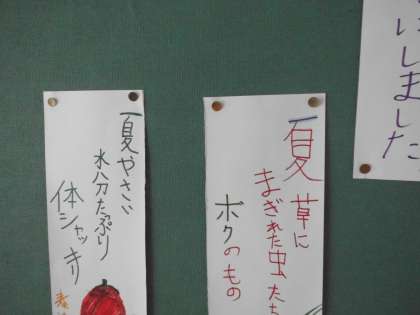 いしました
夏草に
まぎれた虫たち
ボクのもの
夏やさい
水分たっぷり
体シャッキリ